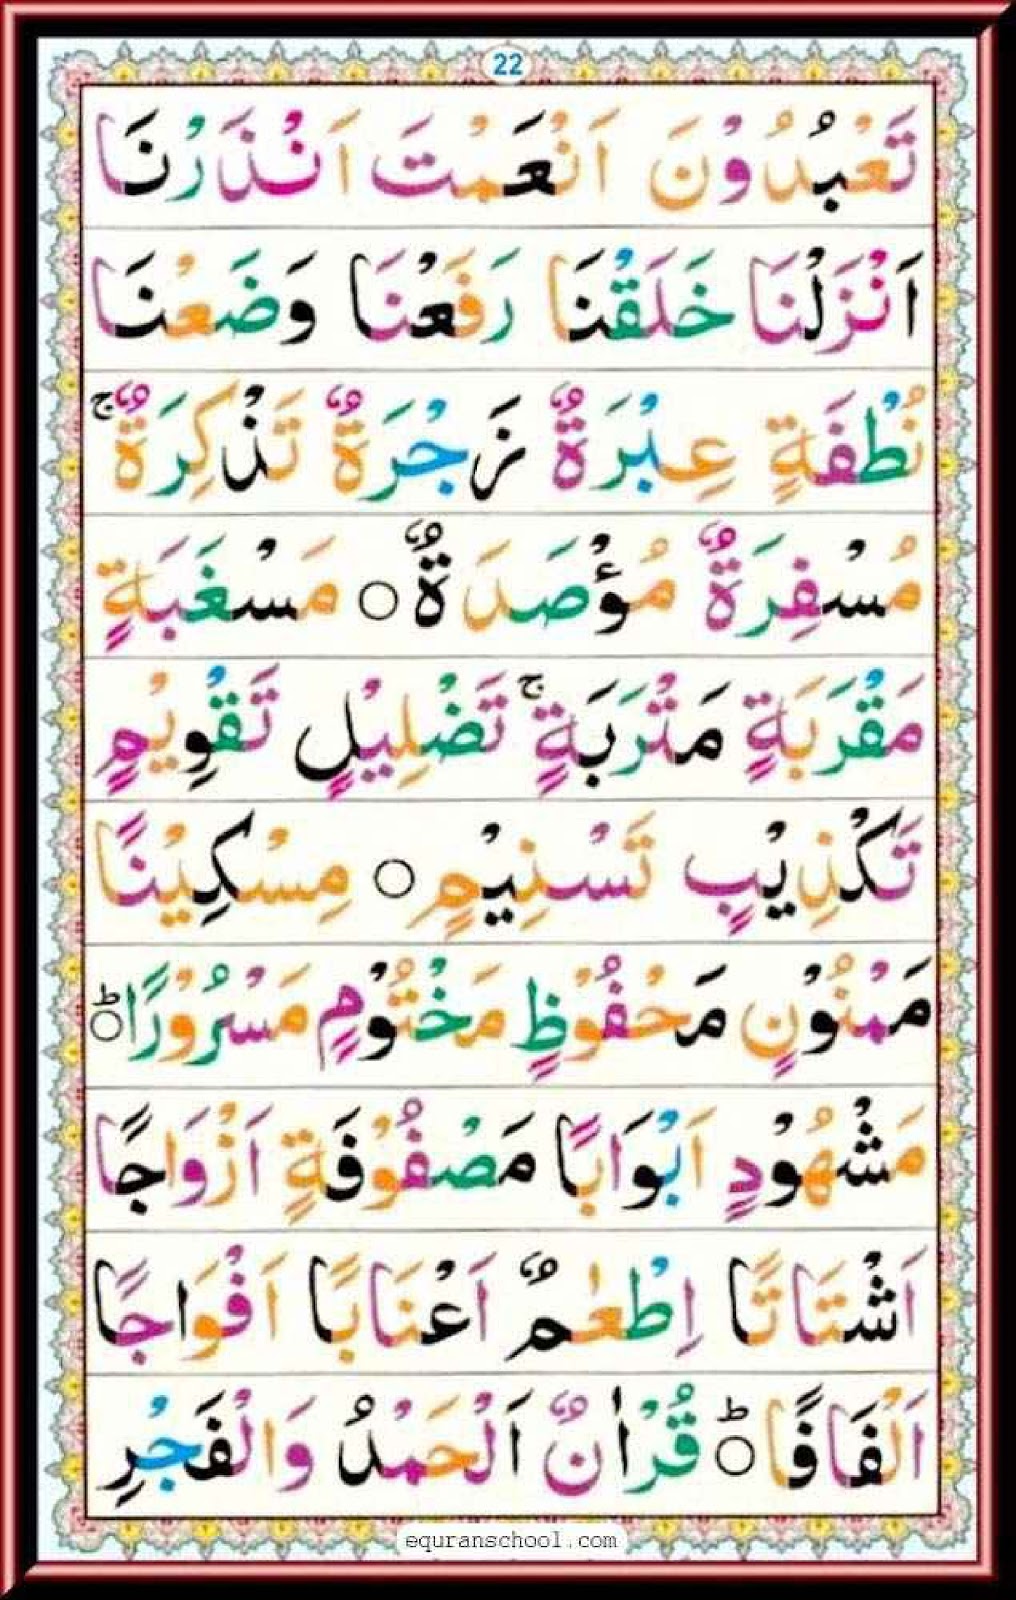 22
تَعْبُدُوْنَ اَنْعَمْتَ اَنْذَرْنَا
اَنْزَلْنَا خَلَقْنَا رَفَعْنَا وَضَعْنَا
نُطْفَةٍ عِبْرَةٌ زَجْرَةٌ تَذْكِرَةٌ ۚ
مُسْفِرَةٌ مُؤْصَدَةٌ ○ مَسْغَبَةٍ
مَقْرَبَةٍ مَتْرَبَةٍ ۚ تَضْلِيْلٍ تَقْوِيْمٍ
تَكْذِيْبٍ تَسْنِيْمٍ ○ مِسْكِيْنًا
مَمْنُوْنٍ مَحْفُوْظٍ مَخْتُوْمٍ مَسْرُوْرًا ؕ○
مَشْهُوْدٍ اَبْوَابًا مَصْفُوْفَةٍ اَزْوَاجًا
اَشْتَاتًا اِطْعٰمٌ اَعْنَابًا اَفْوَاجًا
اَلْفَافًا ؕ○ قُرْاٰنٌ اَلْحَمْدُ وَالْفَجْرِ
equranschool.com